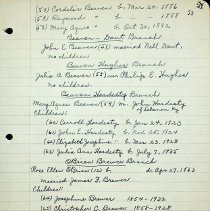 (57) Cordelia Beaven b. Nov. 24, 1886
(58) Raymond " b. " 1888
(59) Mary Agnes " b. Oct. 30, 1892
Beaven - Dant Branch
John E. Beaven married Nell Dant,
no children.
Beaven Hughes Branch
Julia A. Beaven m. Philip E. Hughes
no children.
Beaven Hardesty Branch
Mary Agnes Beaven (59) m. John Hardesty
of Lebanon Ky
Children:
(60) Carroll Hardesty b. Jan. 24, 1923
(61) John E. Hardesty b. Nov. 25, 1924
(62) Elizabeth Josephine " b. Nov. 23, 1928
(63) Julia Ann Hardesty b. July 7, 1925
Brewer Branch
Rose Ellen b. d. Apr. 27, 1862
married James F. Brewer
Children:
(64) Josephine Brewer 1854 - 1922
(65) Christopher C. Brewer 1858 - 1928